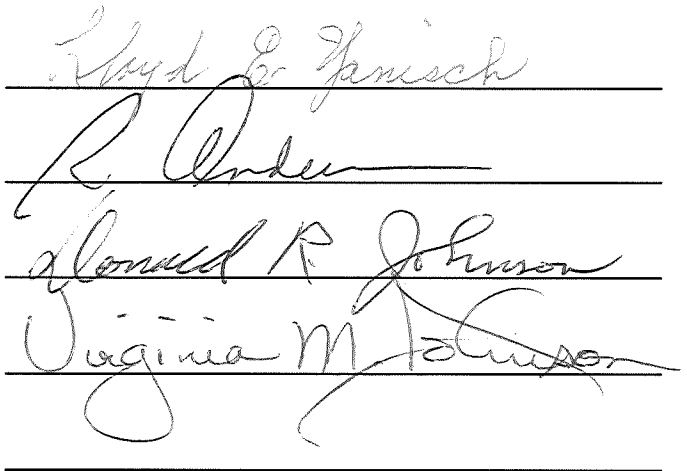 Lloyd E Yanisch
R.
Donald R. Johnson
Virginia M Johnson